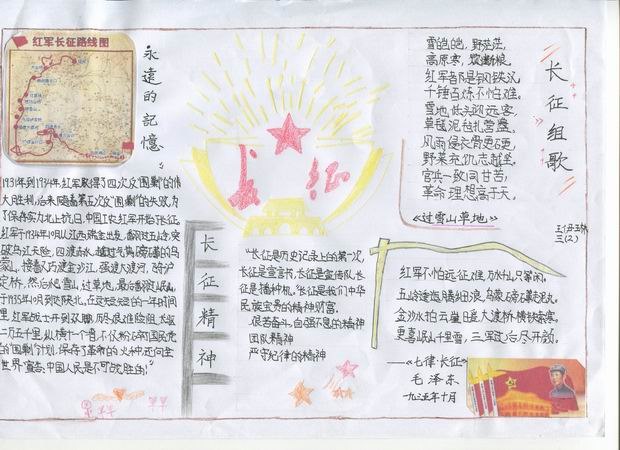 红军长征路线图
永遠的記憶
1931年到1934年,红军取得了四次反"围剿"的伟
大胜利,后来随着第五次反"围剿"的失败,为
了保存实力北上抗日,中国工农红军开始长征。
红军于1934年10月从江西瑞金出发,翻过五岭,突
破乌江天险,四渡赤水,越过气势磅礴的乌
蒙山,接着巧渡金沙江,强渡大渡河,飞夺泸
定桥,然后爬雪山,过草地,最后翻过岷山,
于1935年10月到达陕北。在这天天的一年时间
里,红军战士开到双脚,历尽艰难险阻,长驱
二万五千里,纵横十一个省,不仅粉碎了国民党
的"围剿"计划,保存了革命的火种,还向全
世界宣告:中国人民是不可战胜的!
长征
长征精神
"长征是历史记录上的第一次,
长征是宣言书,长征是宣传队,长
征是播种机。"长征是我们中华
民族宝贵的精神财富。
艰苦奋斗、自强不息的精神
团队精神
严守纪律的精神
长征组歌
雪皑皑,野茫茫,
高原寒,炊断粮。
红军都是钢铁汉,
千锤百炼不怕难。
雪山低头迎远客,
草毯泥毡扎营盘。
风雨侵衣骨更硬,
野菜充饥志越坚。
官兵一致同甘苦,
革命理想高于天。
《过雪山草地》
三(2)
红军不怕远征难,万水千山只等闲。
五岭逶迤腾细浪,乌蒙磅礴走泥丸。
金沙水拍云崖暖,大渡桥横铁索寒。
更喜岷山千里雪,三军过后尽开颜。
——《七律·长征》
毛泽东
一九三五年十月